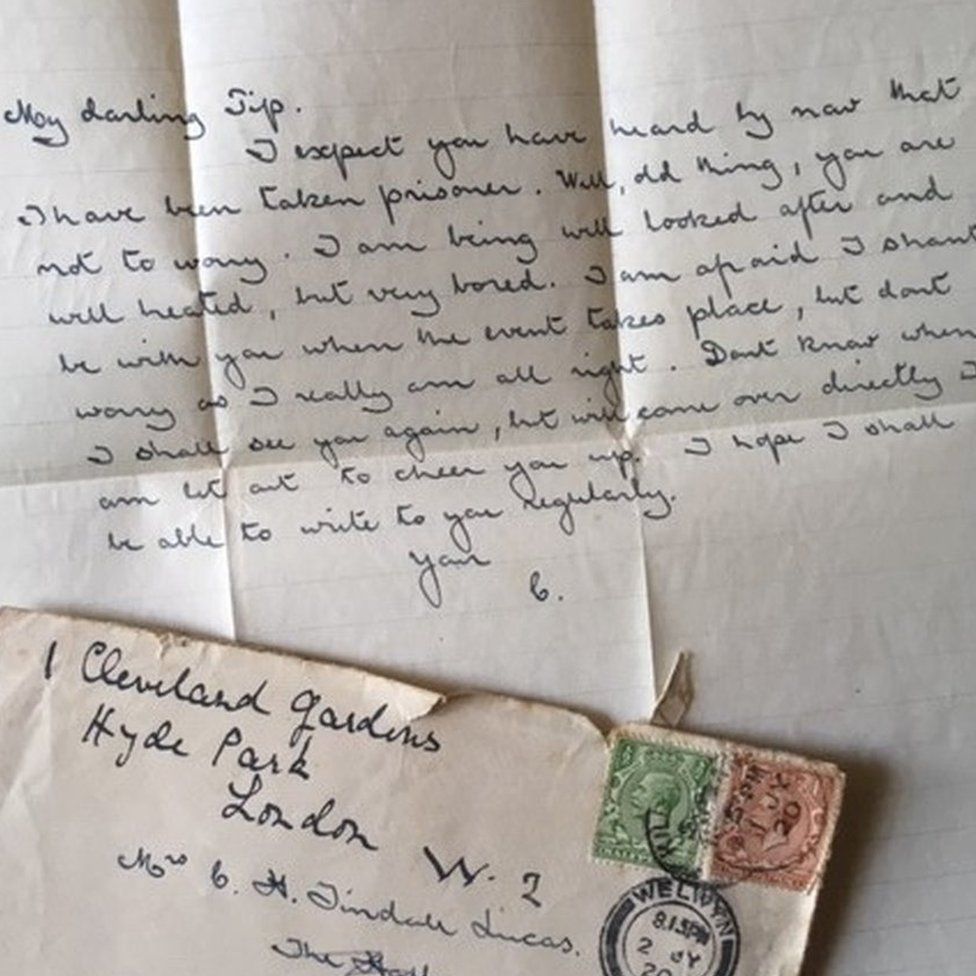 My darling Tip.
I expect you have heard by now that
I have been taken prisoner. Well, old thing, you are
not to worry. I am being well looked after and
well heated, but very bored. I am afraid I shant
be with you when the event takes place, but dont
worry as I really am all right. Dont know when
I shall see you again, but will come over directly I
am let out to cheer you up. I hope I shall
be able to write to you regularly.
Your
C.
1 Cleveland Gardens
Hyde Park
London
W. 2
Mrs C. H. Tindall Lucas.
The Hall
WELWYN
8.15 PM
2 JY
20